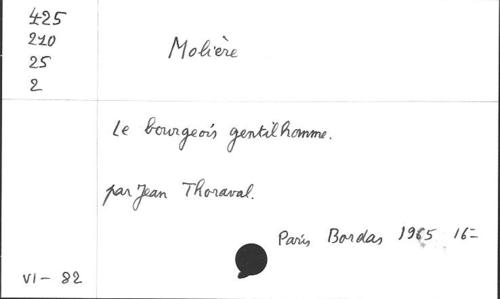 425
210
25
2
Molière
Le bourgeois gentilhomme.
par Jean Thoraval.
Paris Bordas 1965 16=
VI - 82